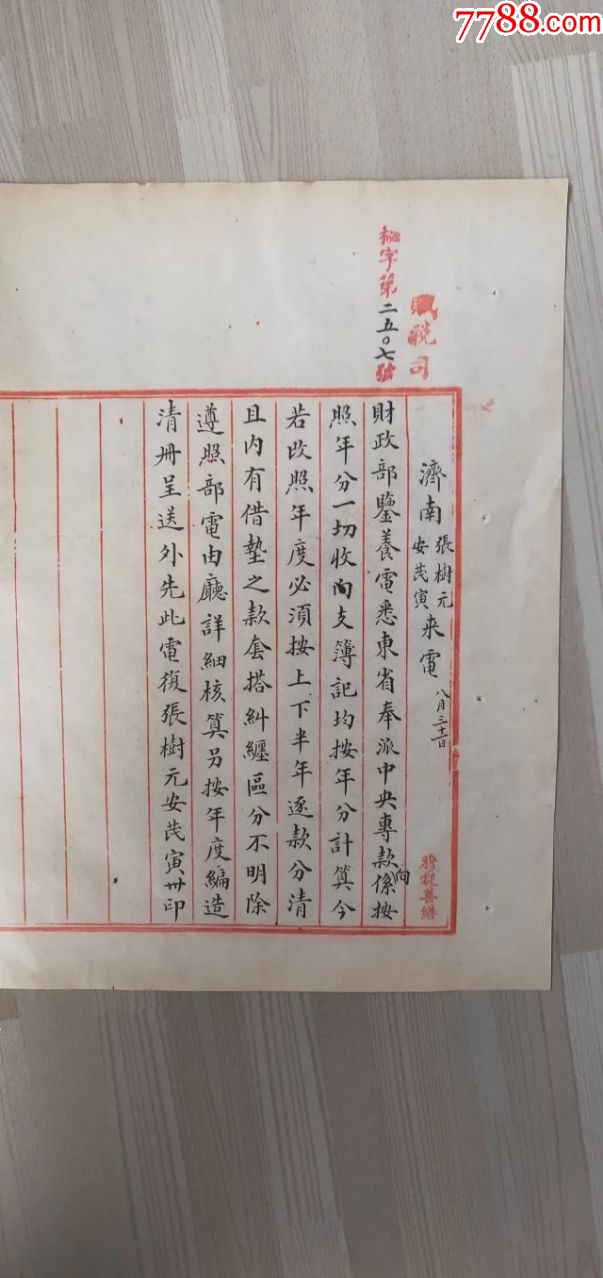 7788.com
賦稅司
秘字第二五〇七號
濟南張樹元安茂寅來電八月三十一日
財政部鑒養電悉東省奉派中央專款向係按
照年分一切收支簿記均按年分計算今
若改照年度必須按上下半年逐款分清
且内有借墊之款套搭糾纏區分不明除
遵照部電由廳詳細核算另按年度編造
清册呈送外先此電復張樹元安茂寅卅印